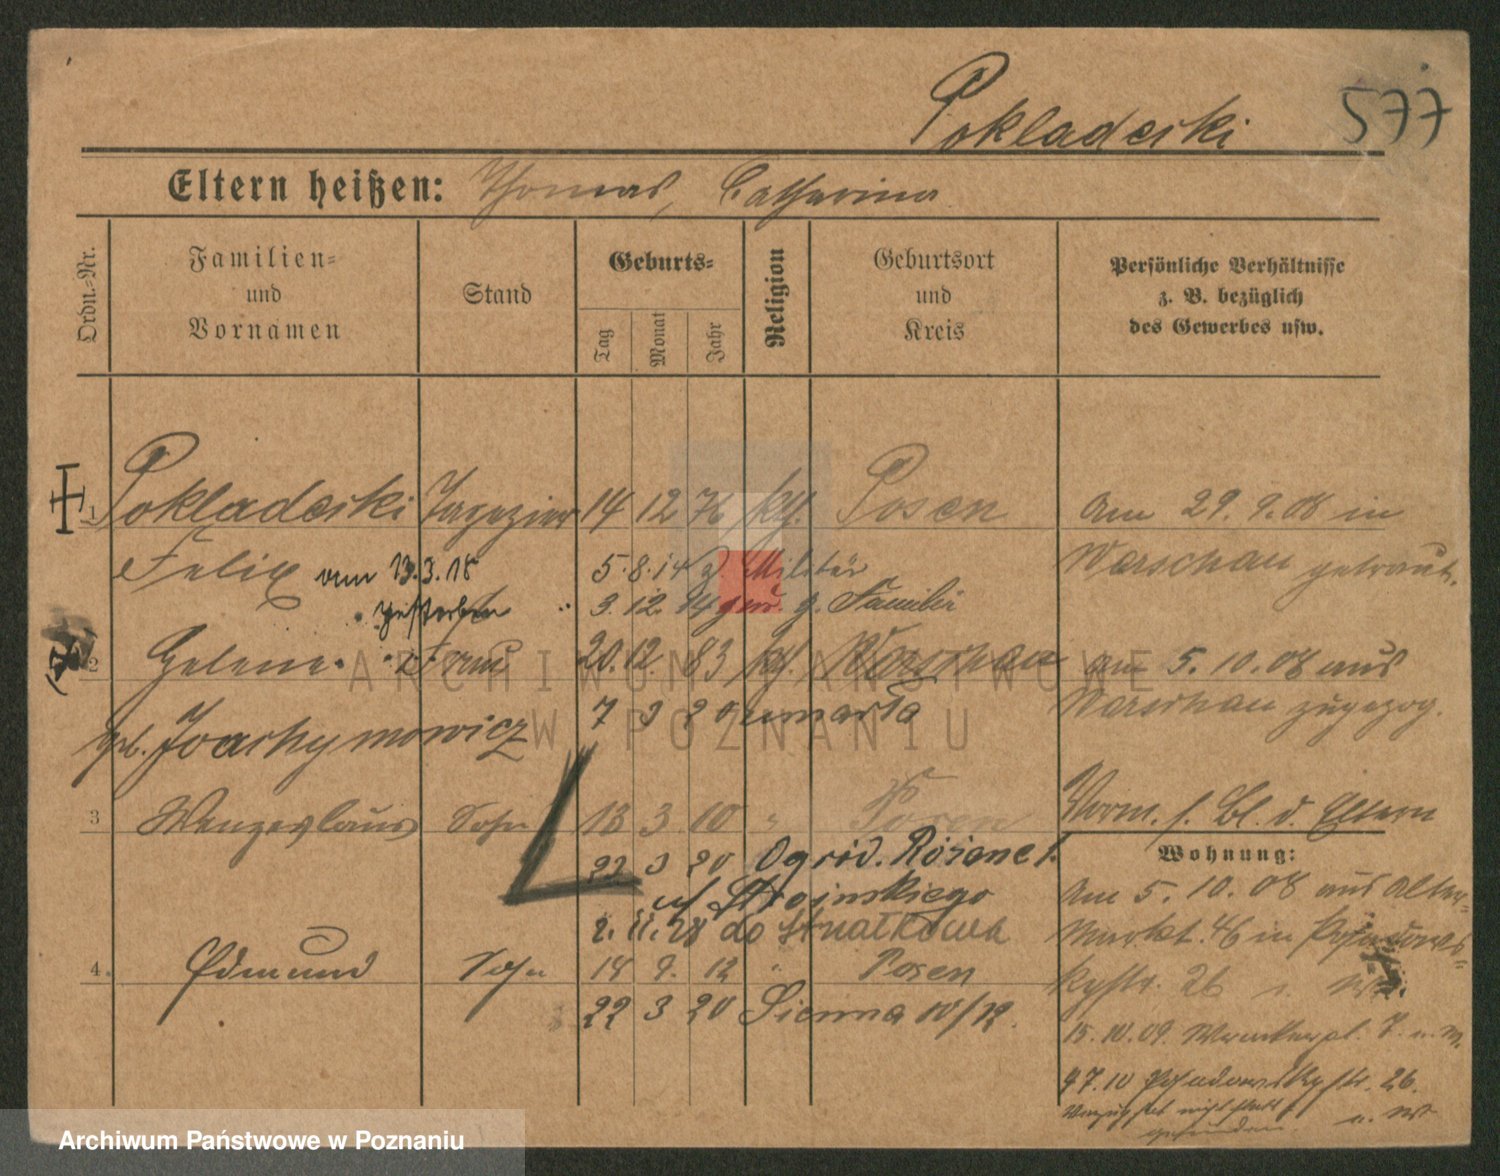 577
Pokladecki
Eltern heißen: Thomas, Catharina
Ordn.-Nr.
Familien-
und
Vornamen
Stand
Geburts-
Tag
Monat
Jahr
Religion
Geburtsort
und
Kreis
Persönliche Verhältnisse
z. B. bezüglich
des Gewerbes usw.
1 Pokladecki Tapezier 14 12 76 kth. Posen Am 29. 9. 08 in
Felix vom 13.3.18 5. 8. 14 z. Militär Warschau getraut.
gestorben 3. 12. 14 zur. z. Familie
2 Helene Frau 20. 12. 83 kth. Warschau am 5. 10. 08 aus
geb. Joachymowicz 7 3 20 umarła Warschau zugezog.
3 Wenzeslaus Sohn 13 3 10 " Posen Vorm. s. Bl. d. Eltern
22 3 20 Ogród.
Wohnung:
u/ Stroinskiego Am 5. 10. 08 aus Alter-
2. 11. 28 do Markt. 46 in Posadows-
4. Edmund Sohn 18 9. 12 " Posen kystr. 26
22 3 20 Sienna 10/12.
15. 10. 09.
10 Posadowskystr. 26.
nicht statt
gefunden.
ARCHIWUM PAŃSTWOWE
W POZNANIU
Archiwum Państwowe w Poznaniu